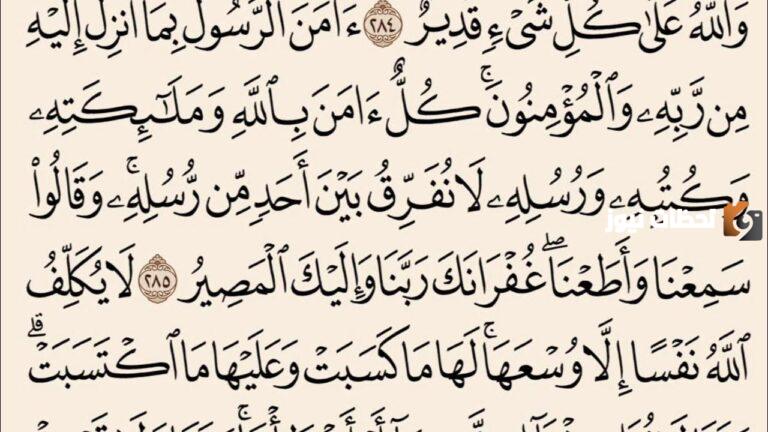 وَٱللَّهُ عَلَىٰ كُلِّ شَىْءٍ قَدِيرٌ ٢٨٤ ءَامَنَ ٱلرَّسُولُ بِمَآ أُنزِلَ إِلَيْهِ
مِن رَّبِّهِۦ وَٱلْمُؤْمِنُونَ ۚ كُلٌّ ءَامَنَ بِٱللَّهِ وَمَلَٰٓئِكَتِهِۦ
وَكُتُبِهِۦ وَرُسُلِهِۦ لَا نُفَرِّقُ بَيْنَ أَحَدٍ مِّن رُّسُلِهِۦ ۚ وَقَالُوا۟
لحظات نيوز
سَمِعْنَا وَأَطَعْنَا ۖ غُفْرَانَكَ رَبَّنَا وَإِلَيْكَ ٱلْمَصِيرُ ٢٨٥ لَا يُكَلِّفُ
ٱللَّهُ نَفْسًا إِلَّا وُسْعَهَا ۚ لَهَا مَا كَسَبَتْ وَعَلَيْهَا مَا ٱكْتَسَبَتْ ۗ